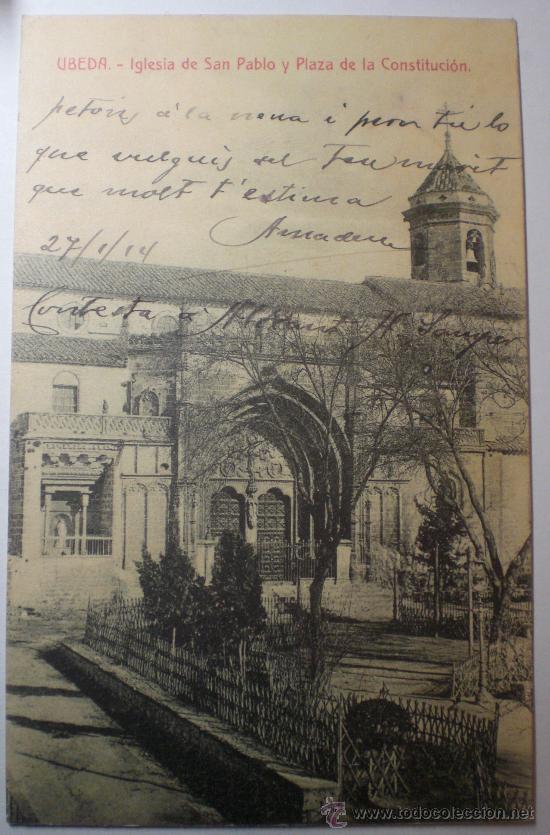 UBEDA. - Iglesia de San Pablo y Plaza de la Constitución.
petons á la nena i pren tú lo
que vulguis del teu marit
que molt t'estima
Amadeu
27/1/14
Contesta á Alicant H. Samper
www.todocoleccion.net